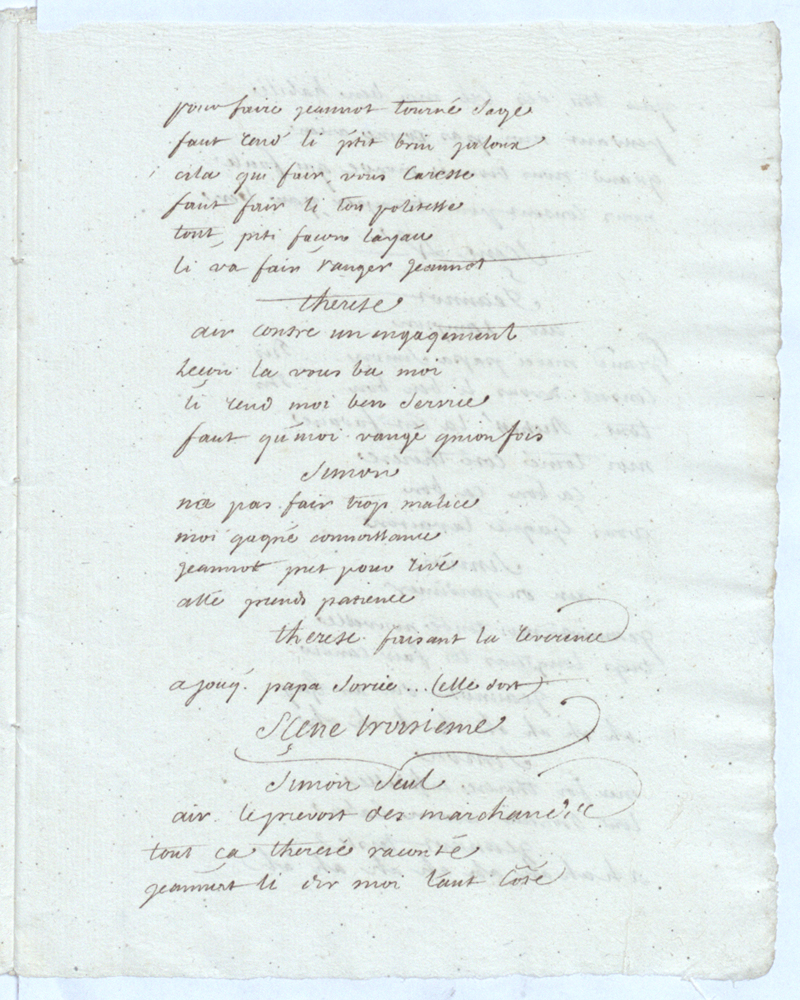 pour faire jeannot tourné sage
faut rend li ptit brin jaloux
cila qui fair vous caresse
faut fair li ton politesse
tout piti façon layau
li va fair ranger jeannot
therese
air contre un engagement
leçon la vous ba moi
li rend moi ben service
faut qu'moi rangé qu'nion fois
Simon
na pas fair trop malice
moi gagné connoissance
jeannot pret pour rivé
allé prends patience
therese faisant la reverence
a jouy. papa sorcie... (elle sort)
Sçene troisieme
Simon seul
air. le prevost des marchands
tout ça therese raconté
jeannot li dir moi l'aut coté